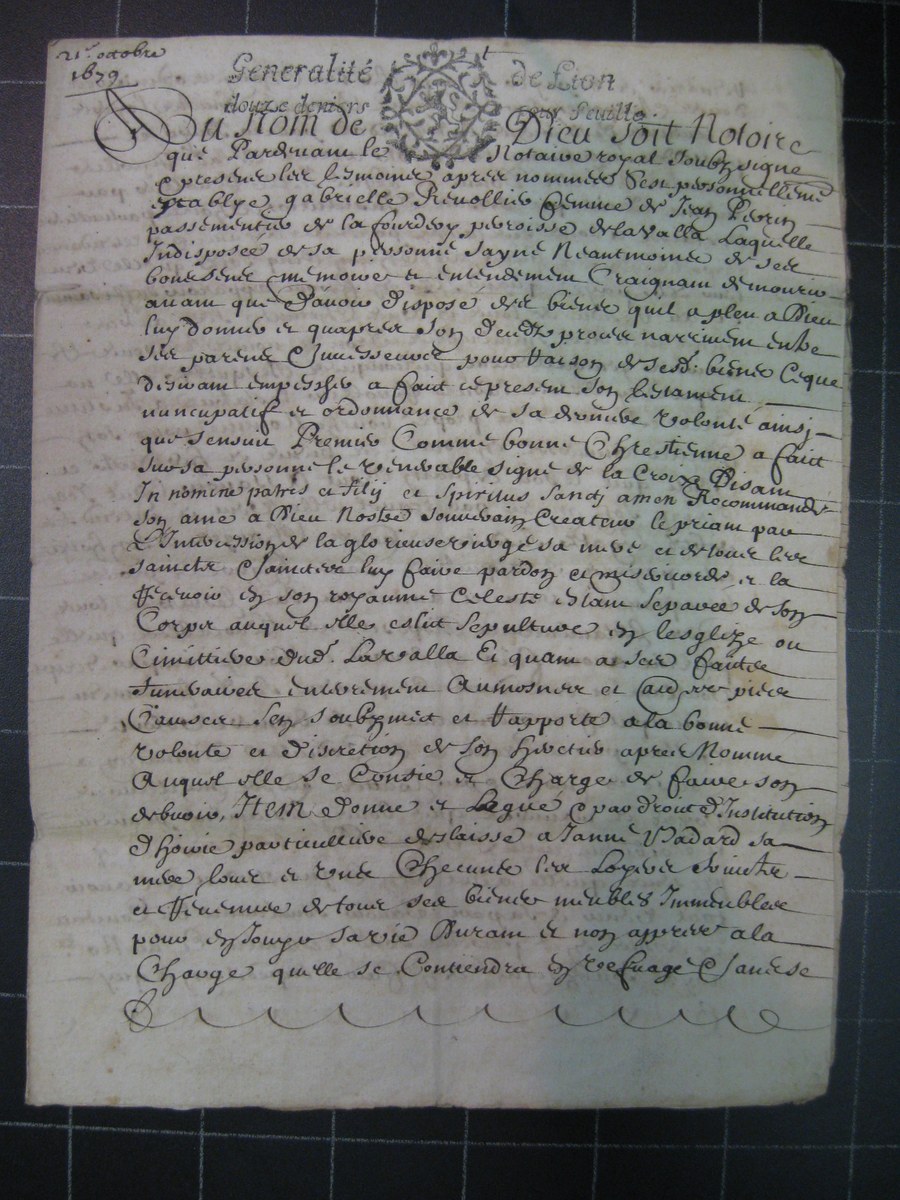 21e octobre
1679
Generalité de Lion
douze deniers par feuille
Au Nom de Dieu soit Notoire
que Pardevant le Notaire royal soubzsigne
& presens les tesmoins apres nommes s'est personnellement
establye gabrielle Femme de Jean Perrin
passementier de la parroisse de lavalla Laquelle
Indisposee de sa personne sayne Neantmoins de ses
bons sens memoire et entendement Craignant de mourir
avant que d'avoir disposé des biens quil a pleu a Dieu
luy donner et quapres son deceds proces narrivent entre
ses parens & successeurs pour Raison de sesd: biens Ceque
desirant empescher a fait ce present son testament
nuncupatif et ordonnance de sa derniere volonté ainsj
que sensuit Premier Comme bonne Chrestienne a fait
sur sa personne le venerable signe de la Croix Disant
In nomine patris et filij et spiritus sancti amen Recommandé
son ame a Dieu Nostre souverain Createur le priant par
L'Intercession de la glorieuse vierge sa mere et de tous les
saincts & sainctes luy faire pardon et misericorde et la
Recevoir en son royaume Celeste estant separee de son
Corps auquel elle eslit sepulture en lesglize ou
Cimittiere dud. Lavalla Et quant a ses fraits
funeraires enterrement Aumosnes et aultres pies
Causes sen soubzmet et Rapporte a la bonne
volonte et discretion de son heretier apres Nomme
Auquel elle se Confie et Charge de faire son
debvoir, Item donne et Legue & par droit d'Institution
d'hoirie particulliere deslaisse a Janne Vadard sa
mere tous et uns Checuns les
et Revenus de tous ses biens meubles Immeubles
pour en Jouyr sa vie Durant et non apprès a la
Charge quelle se Contiendra en & sans se